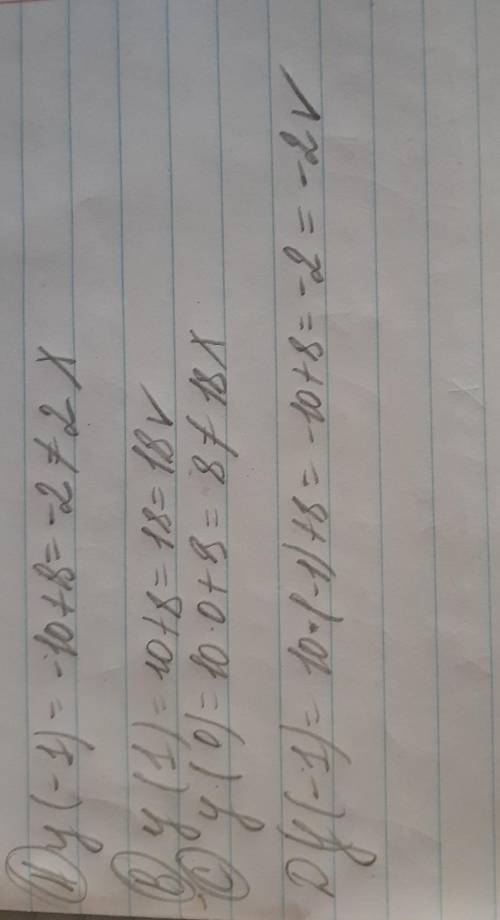 A) y(-1) = -10+8 = -2 ≠ 2 X
B) y(1) = 10+8 = 18 = 18 ✓
C) y(0) = 10·0+8 = 8 ≠ 18 X
D) y(-1) = 10·(-1)+8 = -10+8 = -2 = -2 ✓